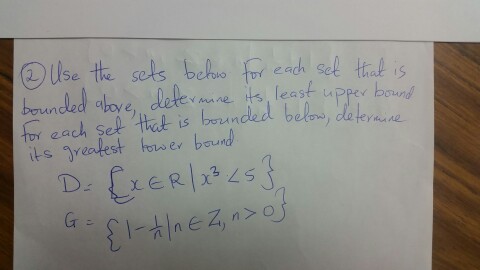 ② Use the sets below for each set that is
bounded above, determine its least upper bound
for each set that is bounded below, determine
its greatest lower bound
D = {x ∈ R | x³ < 5}
G = {1 - 1/n | n ∈ Z, n > 0}